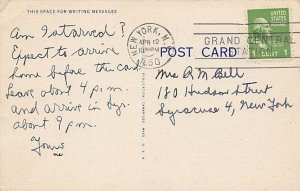 THIS SPACE FOR WRITING MESSAGES
Am I starved?
Expect to arrive
home before the card.
Leave about 4 p.m.
and arrive in Syr.
about 9 p.m.
Yours
me
NEW YORK, N.Y.
APR 12
1950
GRAND CENTRAL
STA
UNITED STATES
1 CENT 1
POST CARD
Mrs R M Bell
180 Hudson Street
Syracuse 4, New York
CAMBRIDGE, MASS., U.S.A.